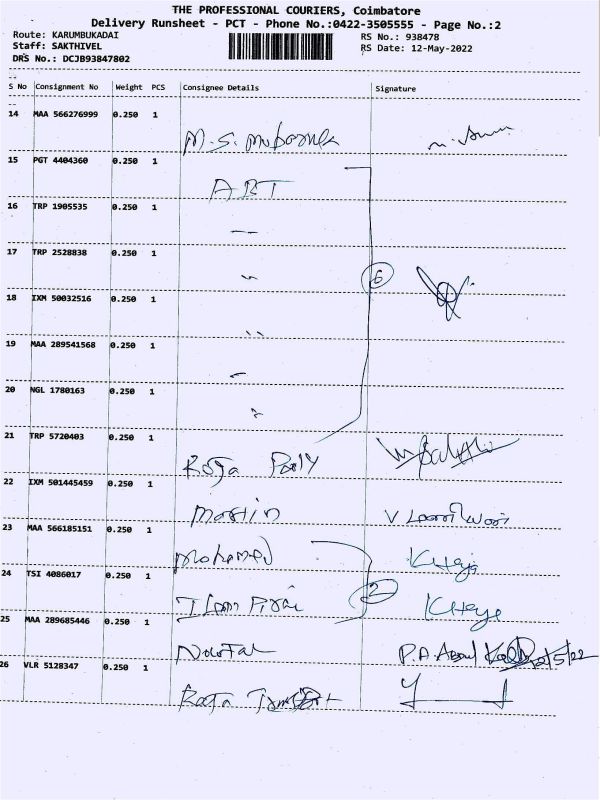 THE PROFESSIONAL COURIERS, Coimbatore
Delivery Runsheet - PCT - Phone No.:0422-3505555 - Page No.:2
Route: KARUMBUKADAI RS No.: 938478
Staff: SAKTHIVEL RS Date: 12-May-2022
DRS No.: DCJB93847802
S No Consignment No Weight PCS Consignee Details Signature
14 MAA 566276999 0.250 1
M.S.
15 PGT 4404360 0.250 1
ABT
16 TRP 1905535 0.250 1
17 TRP 2528838 0.250 1
6
18 IXM 50032516 0.250 1
19 MAA 289541568 0.250 1
20 NGL 1780163 0.250 1
21 TRP 5720403 0.250 1
Raja Poly
22 IXM 501445459 0.250 1
Martin V
23 MAA 566185151 0.250 1
Mohamed
24 TSI 4086017 0.250 1
2
25 MAA 289685446 0.250 1
P.A. Abdul
26 VLR 5128347 0.250 1
Raja